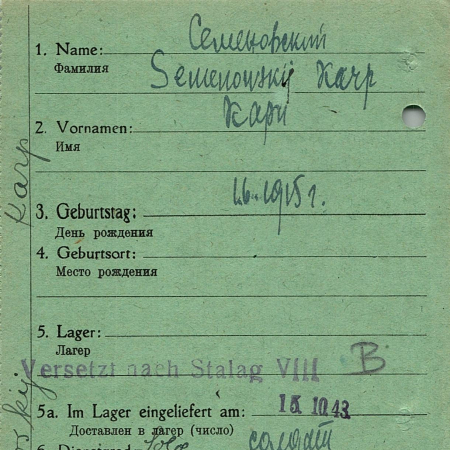 Семеновский
1. Name:
Фамилия
Semenowskij Karp
Карп
2. Vornamen:
Имя
1.6.1915 г.
3. Geburtstag:
День рождения
4. Geburtsort:
Место рождения
5. Lager:
Лагер
Versetzt nach Stalag VIII B
5a. Im Lager eingeliefert am: 15.10.43
Доставлен в лагер (число)
солдат
Karp